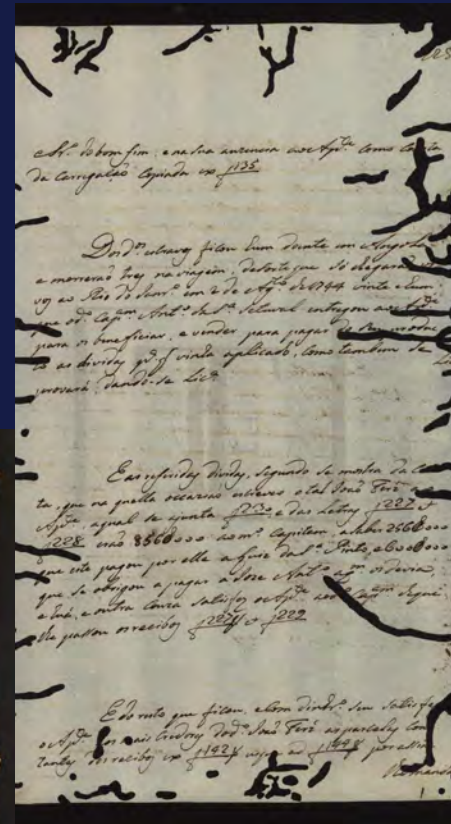 Sr.ª do bom fim, e na sua auzencia ao Ap.de como consta
da Carregação Copiada ex f135
Dos d.os escravos ficou hum doente em Angola
e morrerão tres na viagem, de sorte que só chegarão vi
vos ao Rio de Janr.o em 2 de Ag.to de 1744 vinte e hum
que o d.o Cap.am Ant.o da S.a Setuval entregou ao Ap.de
para os beneficiar, e vender para pagar do seu produc
to as dividas p.a q vinha aplicado, como tambem se
provará, dando-se Lic.a
E as referidas dividas, segundo se mostra da Car
ta, que na quella occazião escreveo o tal João Ferr.a ao
Ap.de, a qual se ajunta f230 e das Letras f227 e
f228 erão 8560000 ao m.o Capitam, a saber 2560000
que este pagou por elle a Jose da S.a Pinto, e 6000000
que se obrigou a pagar a Jose Ant.o a q.m os devia
e huã, e outra couza satisfes o Ap.de ao d.o Cap.am de que
lhe passou os recibos f227 e f229
E do resto que ficou, e com dinhr.o seu satisfes
o Ap.de aos mais credores do d.o João Ferr.a as parcelas cons
tantes dos recibos ex f142 usque ad f149 por assim